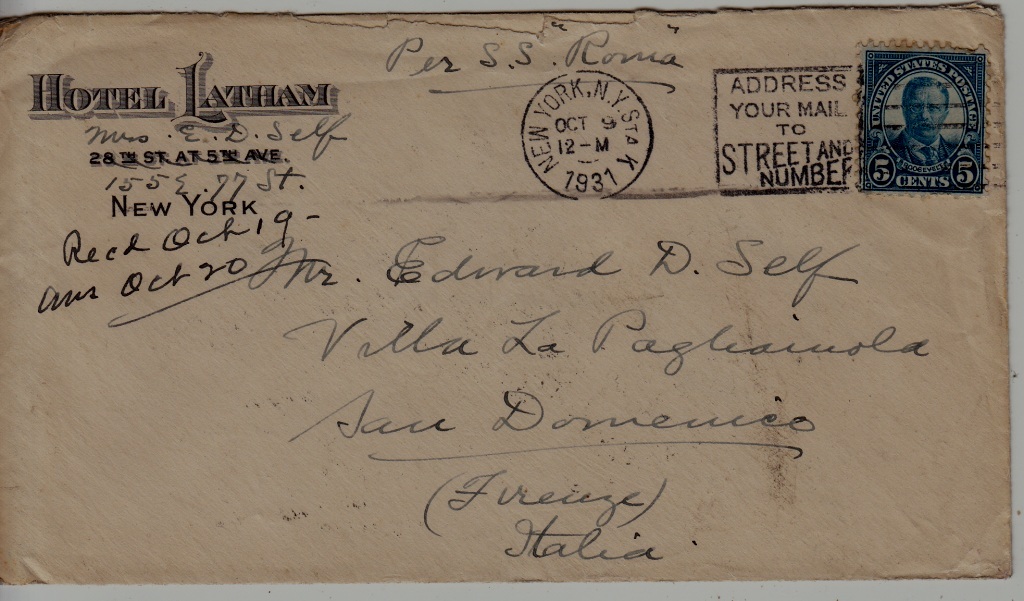 Per S.S. "Roma"
HOTEL LATHAM
Mrs. E. D. Self
28TH ST. AT 5TH AVE.
155 E. 77 St.
NEW YORK
Recd Oct 19-
ans Oct 20
NEW YORK, N.Y. STA K
OCT 9
12-M
1931
ADDRESS
YOUR MAIL
TO
STREET AND
NUMBER
UNITED STATES POSTAGE
ROOSEVELT
5 CENTS 5
Mr. Edward D. Self
Villa La Pagliainola
San Domenico
(Firenze)
Italia.